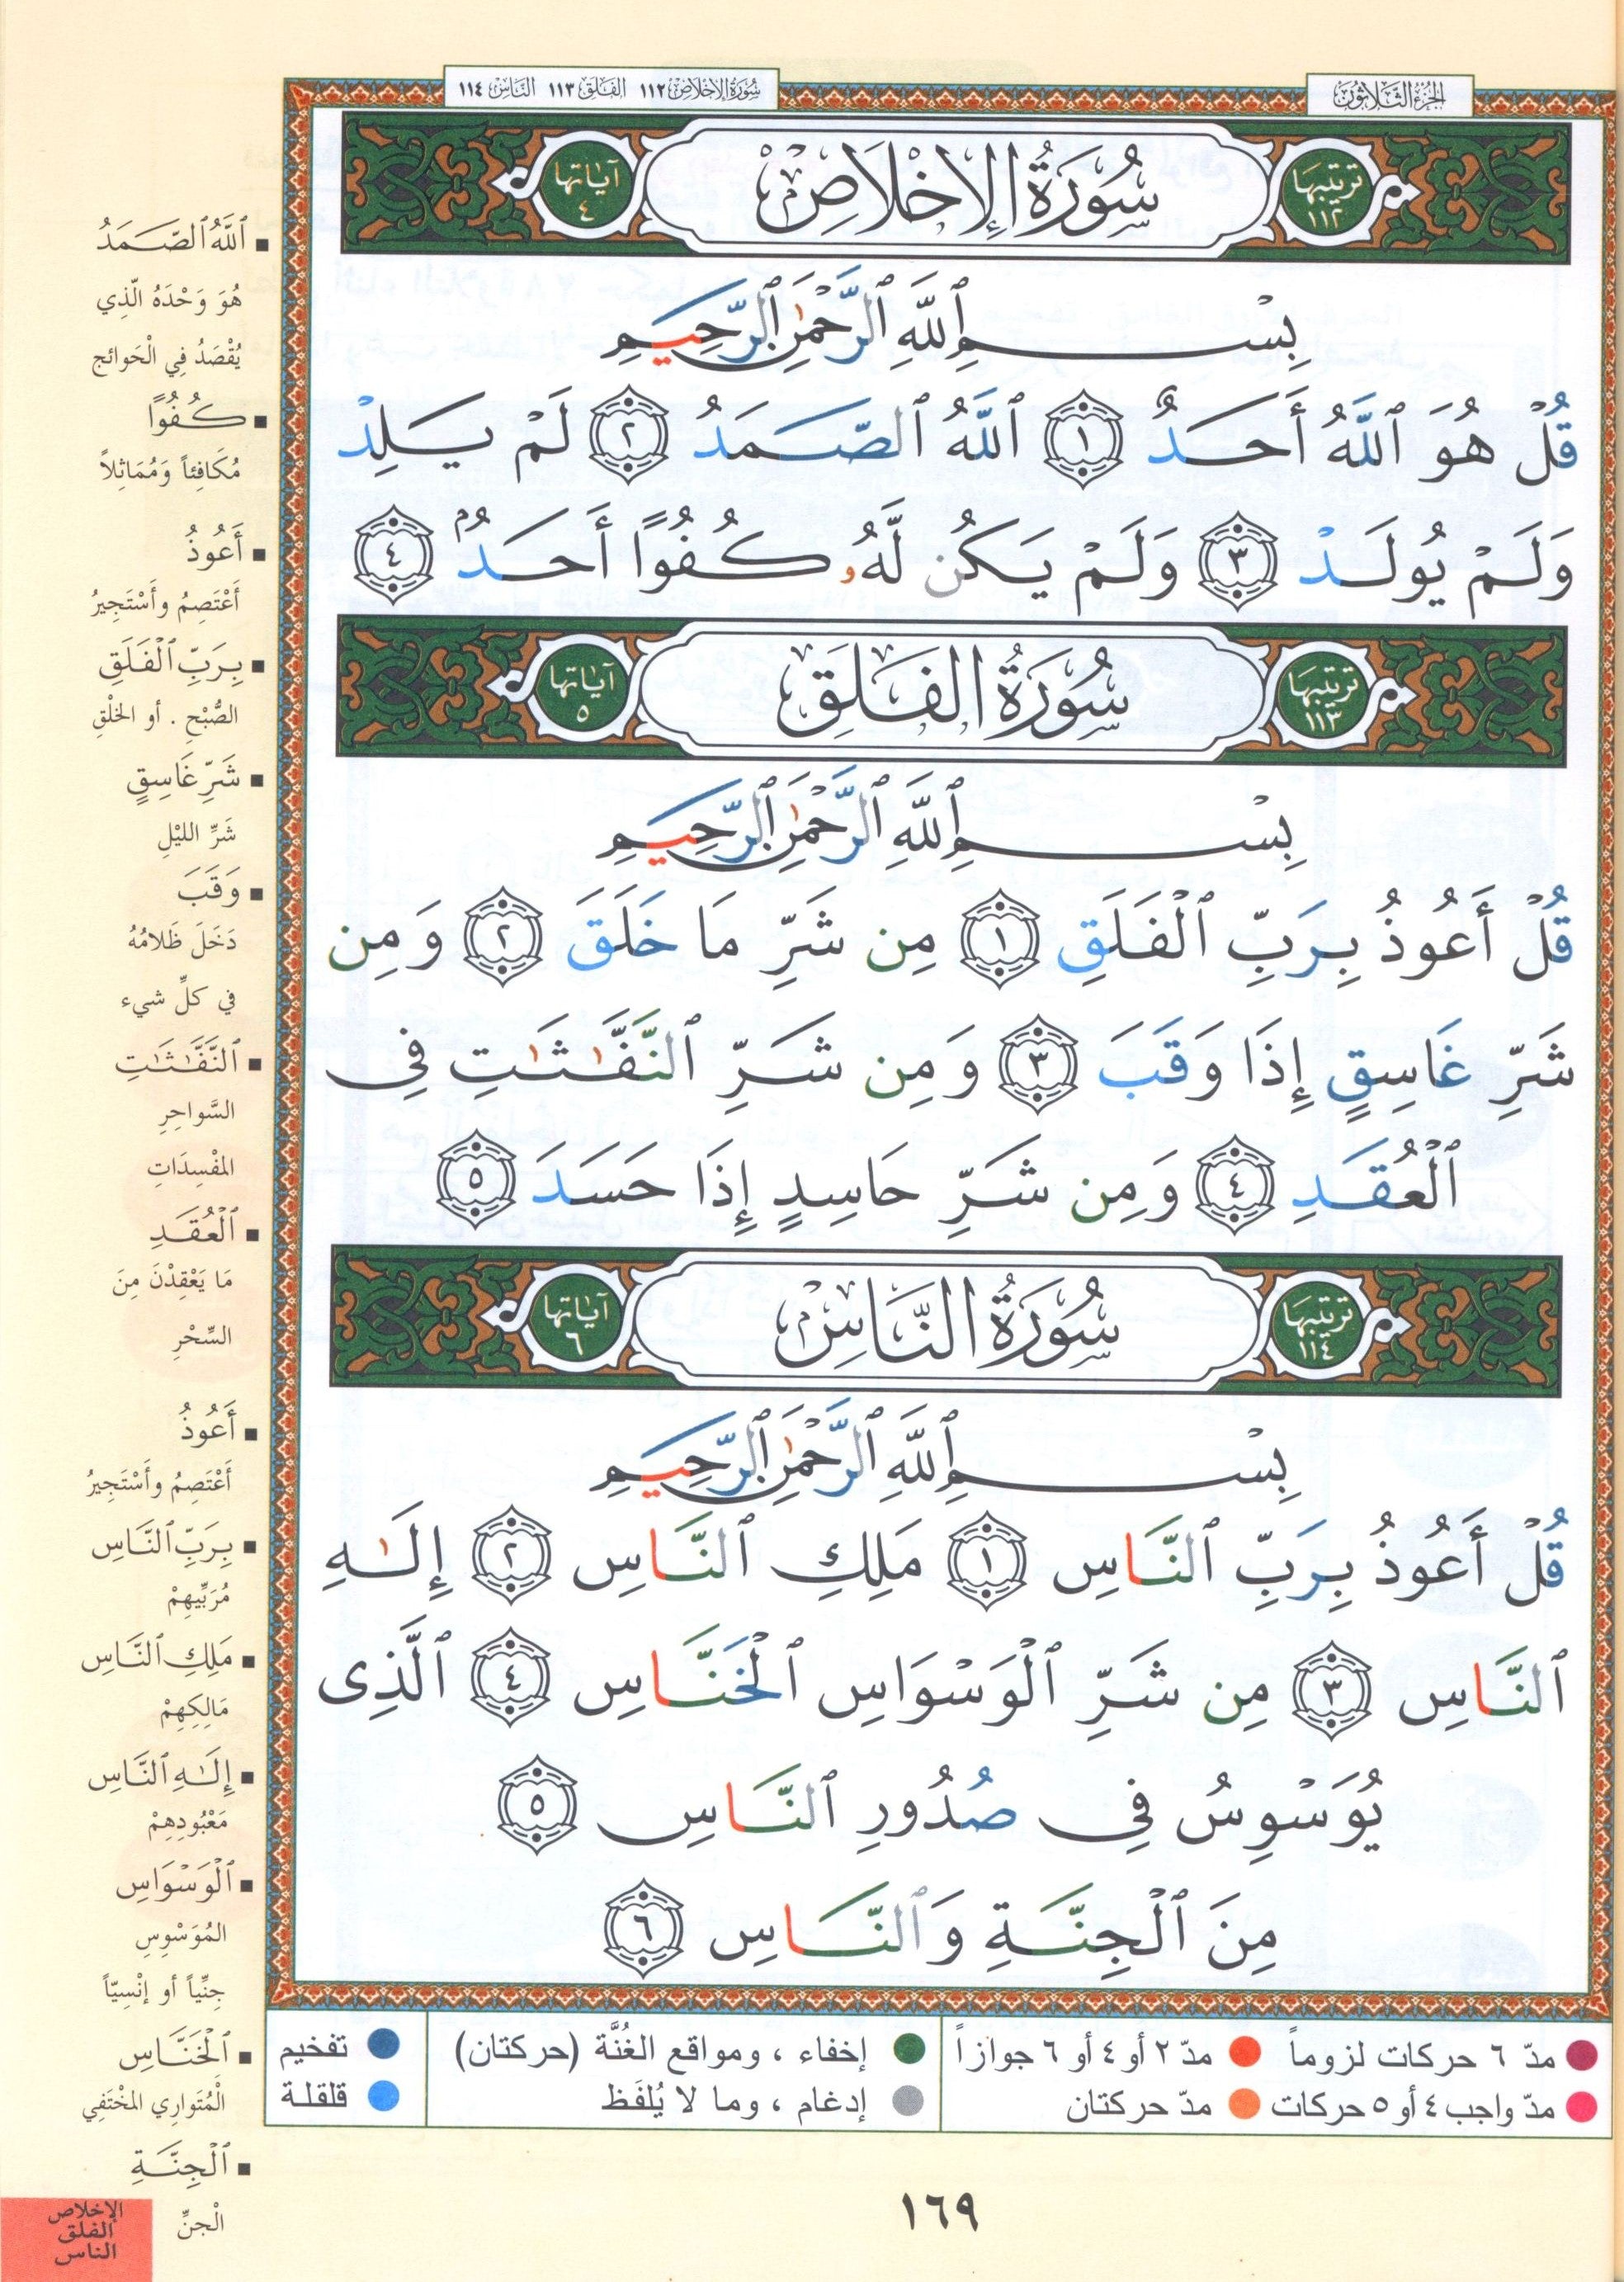 الجزء الثلاثون
سورة الإخلاص ١١٢ الفلق ١١٣ الناس ١١٤
ترتيبها ١١٢
سُورَةُ الإِخْلَاصِ
آياتها ٤
بِسْمِ ٱللَّهِ ٱلرَّحْمَٰنِ ٱلرَّحِيمِ
قُلْ هُوَ ٱللَّهُ أَحَدٌ ١ ٱللَّهُ ٱلصَّمَدُ ٢ لَمْ يَلِدْ
وَلَمْ يُولَدْ ٣ وَلَمْ يَكُن لَّهُۥ كُفُوًا أَحَدٌۢ ٤
ترتيبها ١١٣
سُورَةُ الفَلَقِ
آياتها ٥
بِسْمِ ٱللَّهِ ٱلرَّحْمَٰنِ ٱلرَّحِيمِ
قُلْ أَعُوذُ بِرَبِّ ٱلْفَلَقِ ١ مِن شَرِّ مَا خَلَقَ ٢ وَمِن
شَرِّ غَاسِقٍ إِذَا وَقَبَ ٣ وَمِن شَرِّ ٱلنَّفَّٰثَٰتِ فِى
ٱلْعُقَدِ ٤ وَمِن شَرِّ حَاسِدٍ إِذَا حَسَدَ ٥
ترتيبها ١١٤
سُورَةُ النَّاسِ
آياتها ٦
بِسْمِ ٱللَّهِ ٱلرَّحْمَٰنِ ٱلرَّحِيمِ
قُلْ أَعُوذُ بِرَبِّ ٱلنَّاسِ ١ مَلِكِ ٱلنَّاسِ ٢ إِلَٰهِ
ٱلنَّاسِ ٣ مِن شَرِّ ٱلْوَسْوَاسِ ٱلْخَنَّاسِ ٤ ٱلَّذِى
يُوَسْوِسُ فِى صُدُورِ ٱلنَّاسِ ٥
مِنَ ٱلْجِنَّةِ وَٱلنَّاسِ ٦
ٱللَّهُ ٱلصَّمَدُ
هُوَ وَحْدَهُ الَّذِي
يُقْصَدُ فِي الْحَوائِج
كُفُوًا
مُكَافِئاً وَمُمَاثِلاً
أَعُوذُ
أَعْتَصِمُ وأَسْتَجِيرُ
بِرَبِّ ٱلْفَلَقِ
الصُّبْحِ . أو الخلْقِ
شَرِّ غَاسِقٍ
شَرِّ الليْلِ
وَقَبَ
دَخَلَ ظَلامُهُ
في كلِّ شيء
ٱلنَّفَّٰثَٰتِ
السَّواحِرِ
المفْسِدَاتِ
ٱلْعُقَدِ
مَا يَعْقِدْنَ مِنَ
السِّحْرِ
أَعُوذُ
أَعْتَصِمُ وأَسْتَجِيرُ
بِرَبِّ ٱلنَّاسِ
مُرَبِّيهِمْ
مَلِكِ ٱلنَّاسِ
مَالِكِهِمْ
إِلَٰهِ ٱلنَّاسِ
مَعْبُودِهِمْ
ٱلْوَسْوَاسِ
المُوَسْوِسِ
جِنِّياً أو إنْسِيّاً
ٱلْخَنَّاسِ
الْمُتَوارِي المخْتَفِي
ٱلْجِنَّةِ
الْجنِّ
مدّ ٦ حركات لزوماً مدّ ٢ أو ٤ أو ٦ جوازاً
مدّ واجب ٤ أو ٥ حركات مدّ حركتان
إخفاء ، ومواقع الغُنَّة (حركتان)
إدغام ، وما لا يُلفَظ
تفخيم
قلقلة
١٦٩
الإخلاص
الفلق
الناس